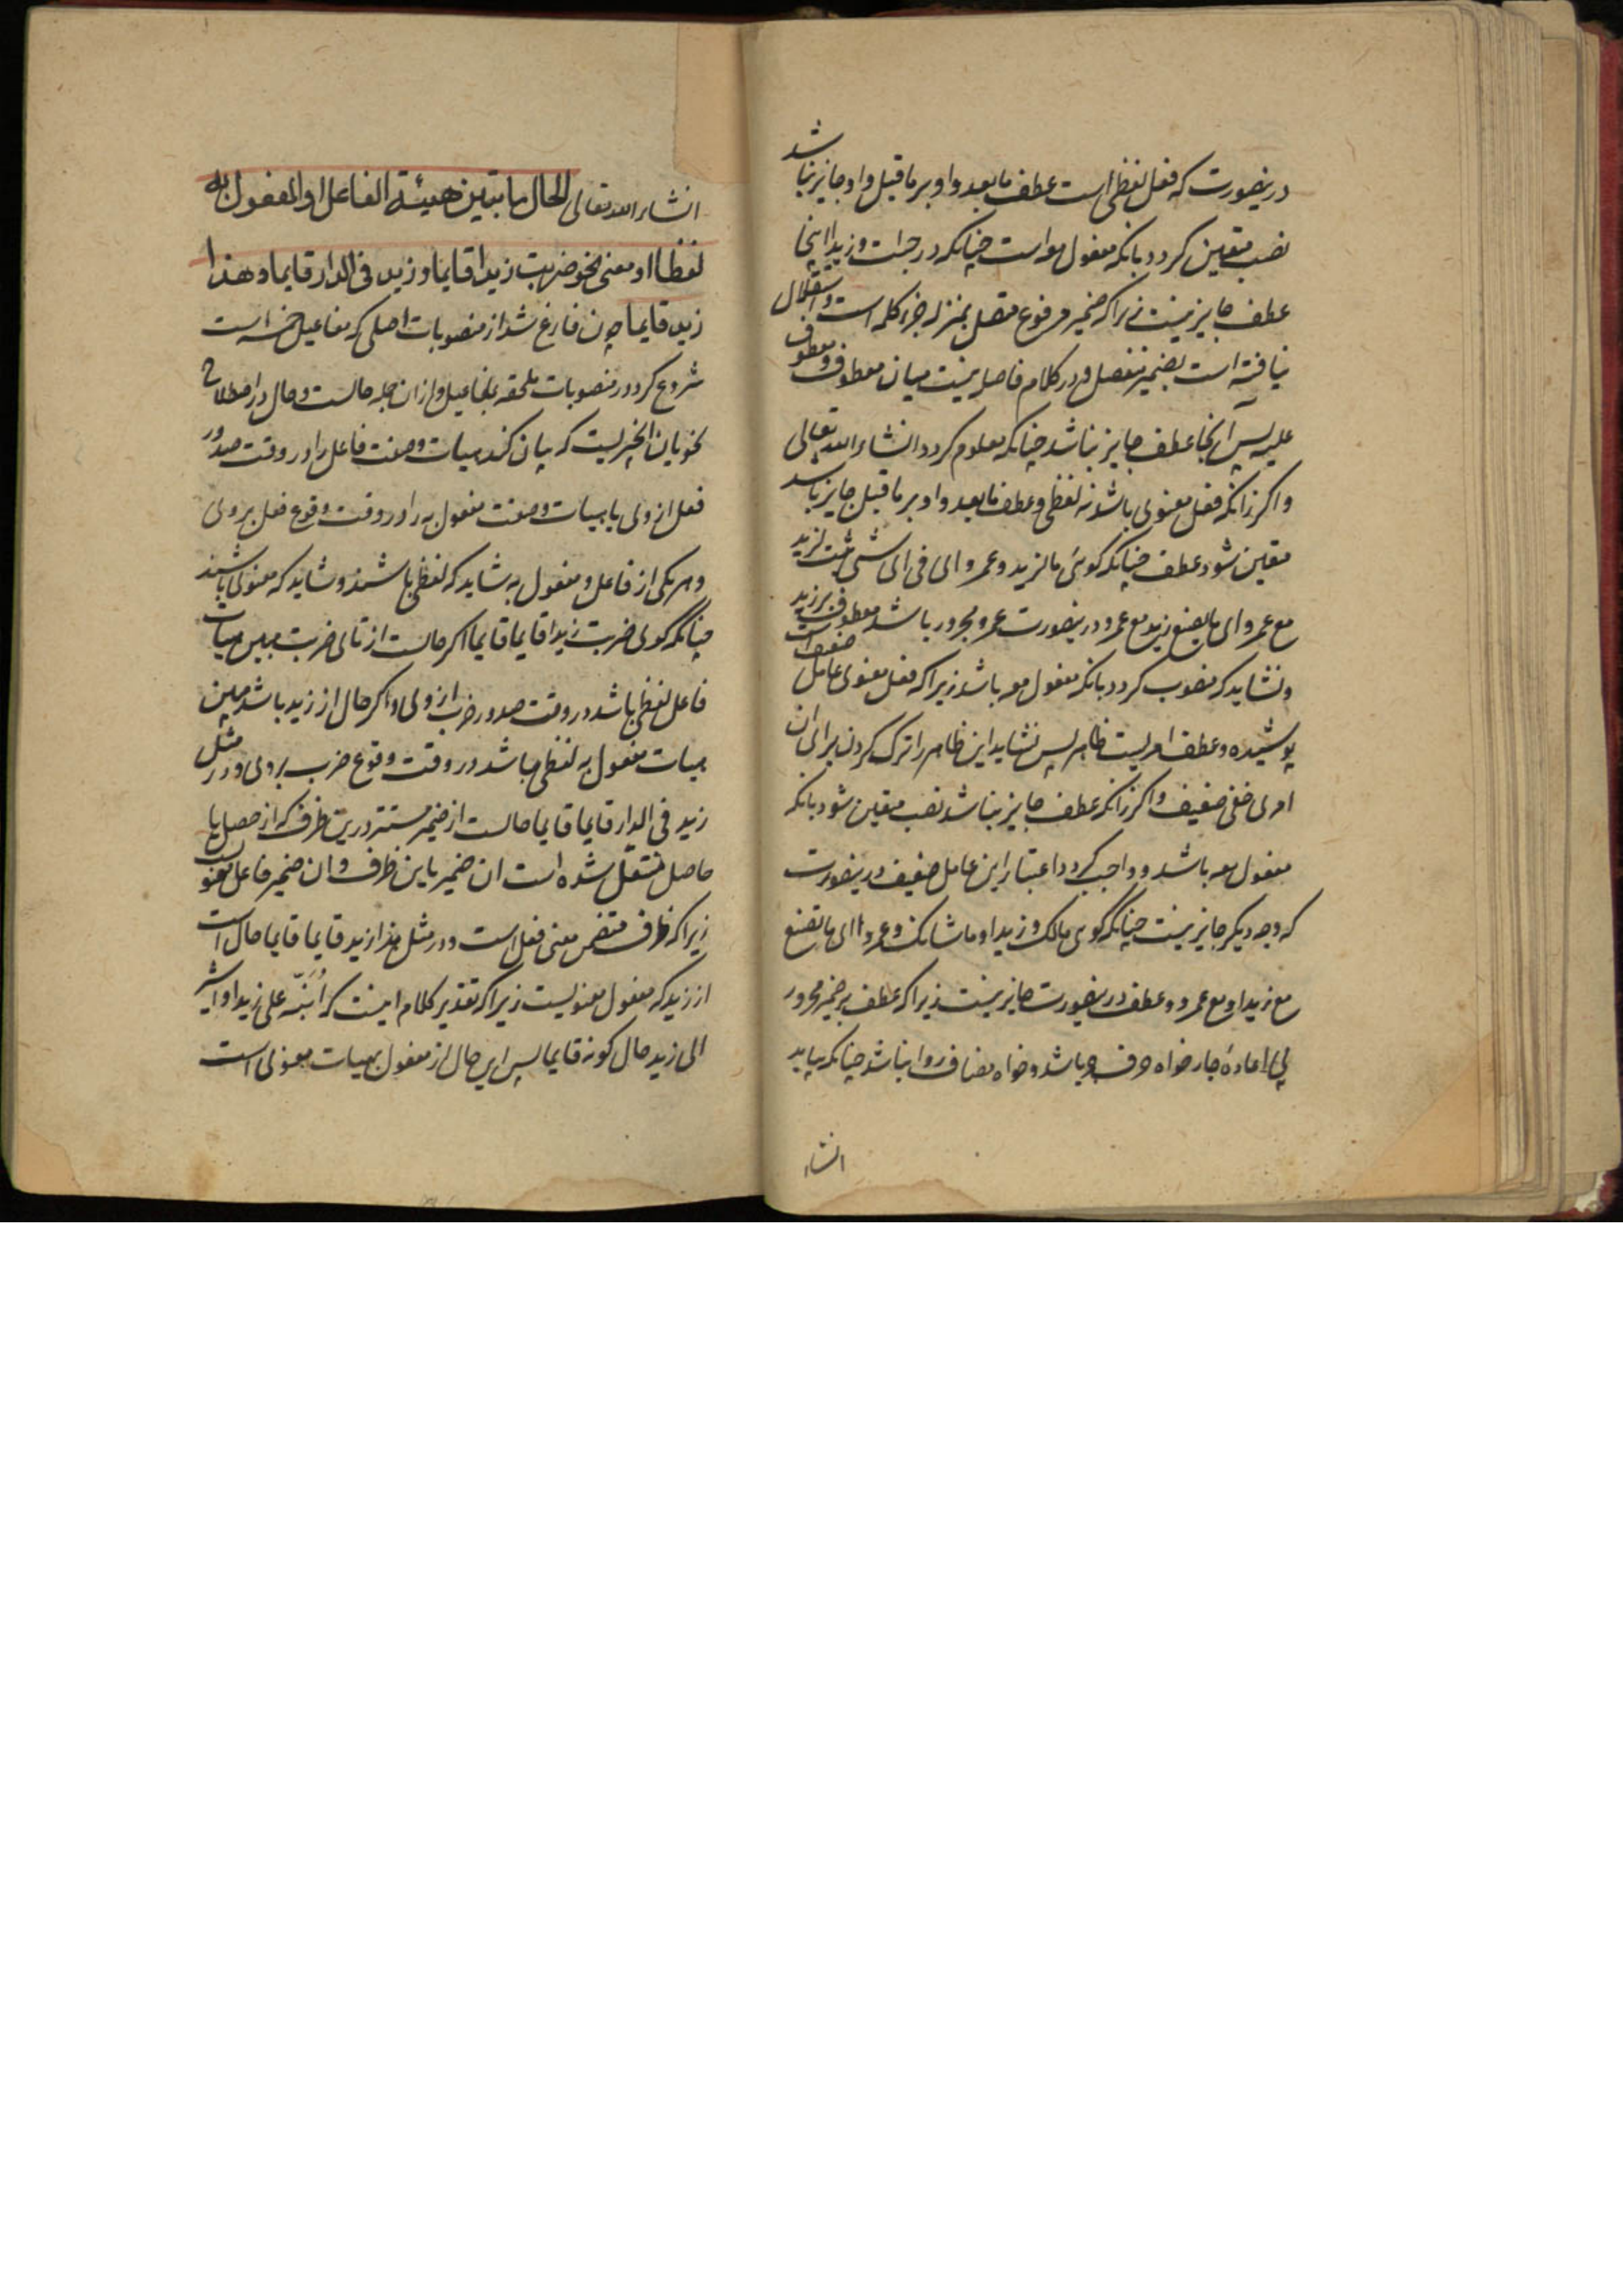 درینصورت که فعل لفظی است عطف مابعد واو بر ماقبل واو جایز نباشد
نصب متعین کردد بانکه مفعول معه است چنانکه در جئت و زیدا اینجا
عطف جایز نیست زیراکه ضمیر مرفوع متصل بمنزله جزء کلمه است و استقلال
نیافته است بضمیر منفصل و در کلام فاصل نیست میان معطوف و معطوف
علیه پس آنجا عطف جایز نباشد چنانکه معلوم کردد انشاء الله تعالی
و اکر زانکه فعل معنوی باشد نه لفظی و عطف مابعد واو بر ماقبل جایز باشد
متعین شود عطف چنانکه کوئی مالزید و عمرو ای فی ای شیء ثبت لزید
مع عمرو ای ما یصنع زید مع عمرو درینصورت عمرو مجرور باشد معطوف بر زید
و نشاید که منصوب کردد بانکه مفعول معه باشد زیراکه فعل معنوی عامل ضعیف است
پوشیده و عطف امریست ظاهر پس نشاید این ظاهر را ترک کردن برای آن
امری خفی ضعیف و اکر زانکه عطف جایز نباشد نصب متعین شود بانکه
مفعول معه باشد و واجب کردد اعتبار این عامل ضعیف درینصورت
که وجه دیکر جایز نیست چنانکه کوی مالک و زیدا و ماشانک و عمروا ای ما تصنع
مع زید او مع عمرو و عطف درینصورت جایز نیست زیراکه عطف بر ضمیر مجرور
بی اعادهٔ جار خواه حرف جر باشد و خواه مضاف روا نباشد چنانکه بیاید
انشاء
انشاء الله تعالی الحال ما یبین هیئة الفاعل او المفعول به
لفظا او معنی نحو ضربت زیدا قایما و زید فی الدار قایما و هذا
زید قایما چون فارغ شد از منصوبات اصلی که مفاعیل خمسه است
شروع کرد در منصوبات ملحقه بمفاعیل و ازان جمله حالست و حال در اصطلاح
نحویان آنچیزیست که بیان کند هیات و صفت فاعل را در وقت صدور
فعل از وی یا هیات و صفت مفعول به را در وقت وقوع فعل بر وی
و هر یکی از فاعل و مفعول به شاید که لفظی باشند و شاید که معنوی باشند
چنانکه کوی ضربت زیدا قایما قایما اکر حالست از تای ضربت مبین هیات
فاعل لفظی باشد در وقت صدور ضرب از وی و اکر حال از زید باشد مبین
هیات مفعول به لفظی باشد در وقت وقوع ضرب بر وی و در مثل
زید فی الدار قایما قایما حالست از ضمیر مستتر درین ظرف که از حصل یا
حاصل منتقل شده است ان ضمیر باین ظرف و ان ضمیر فاعل معنویست
زیراکه ظرف متضمن معنی فعل است و در مثل هذا زید قایما قایما حال است
از زید که مفعول معنویست زیراکه تقدیر کلام اینست که اُنَبِّهُ علی زید او اشیر
الی زید حال کونه قایما پس این حال از مفعول به هیات معنوی است